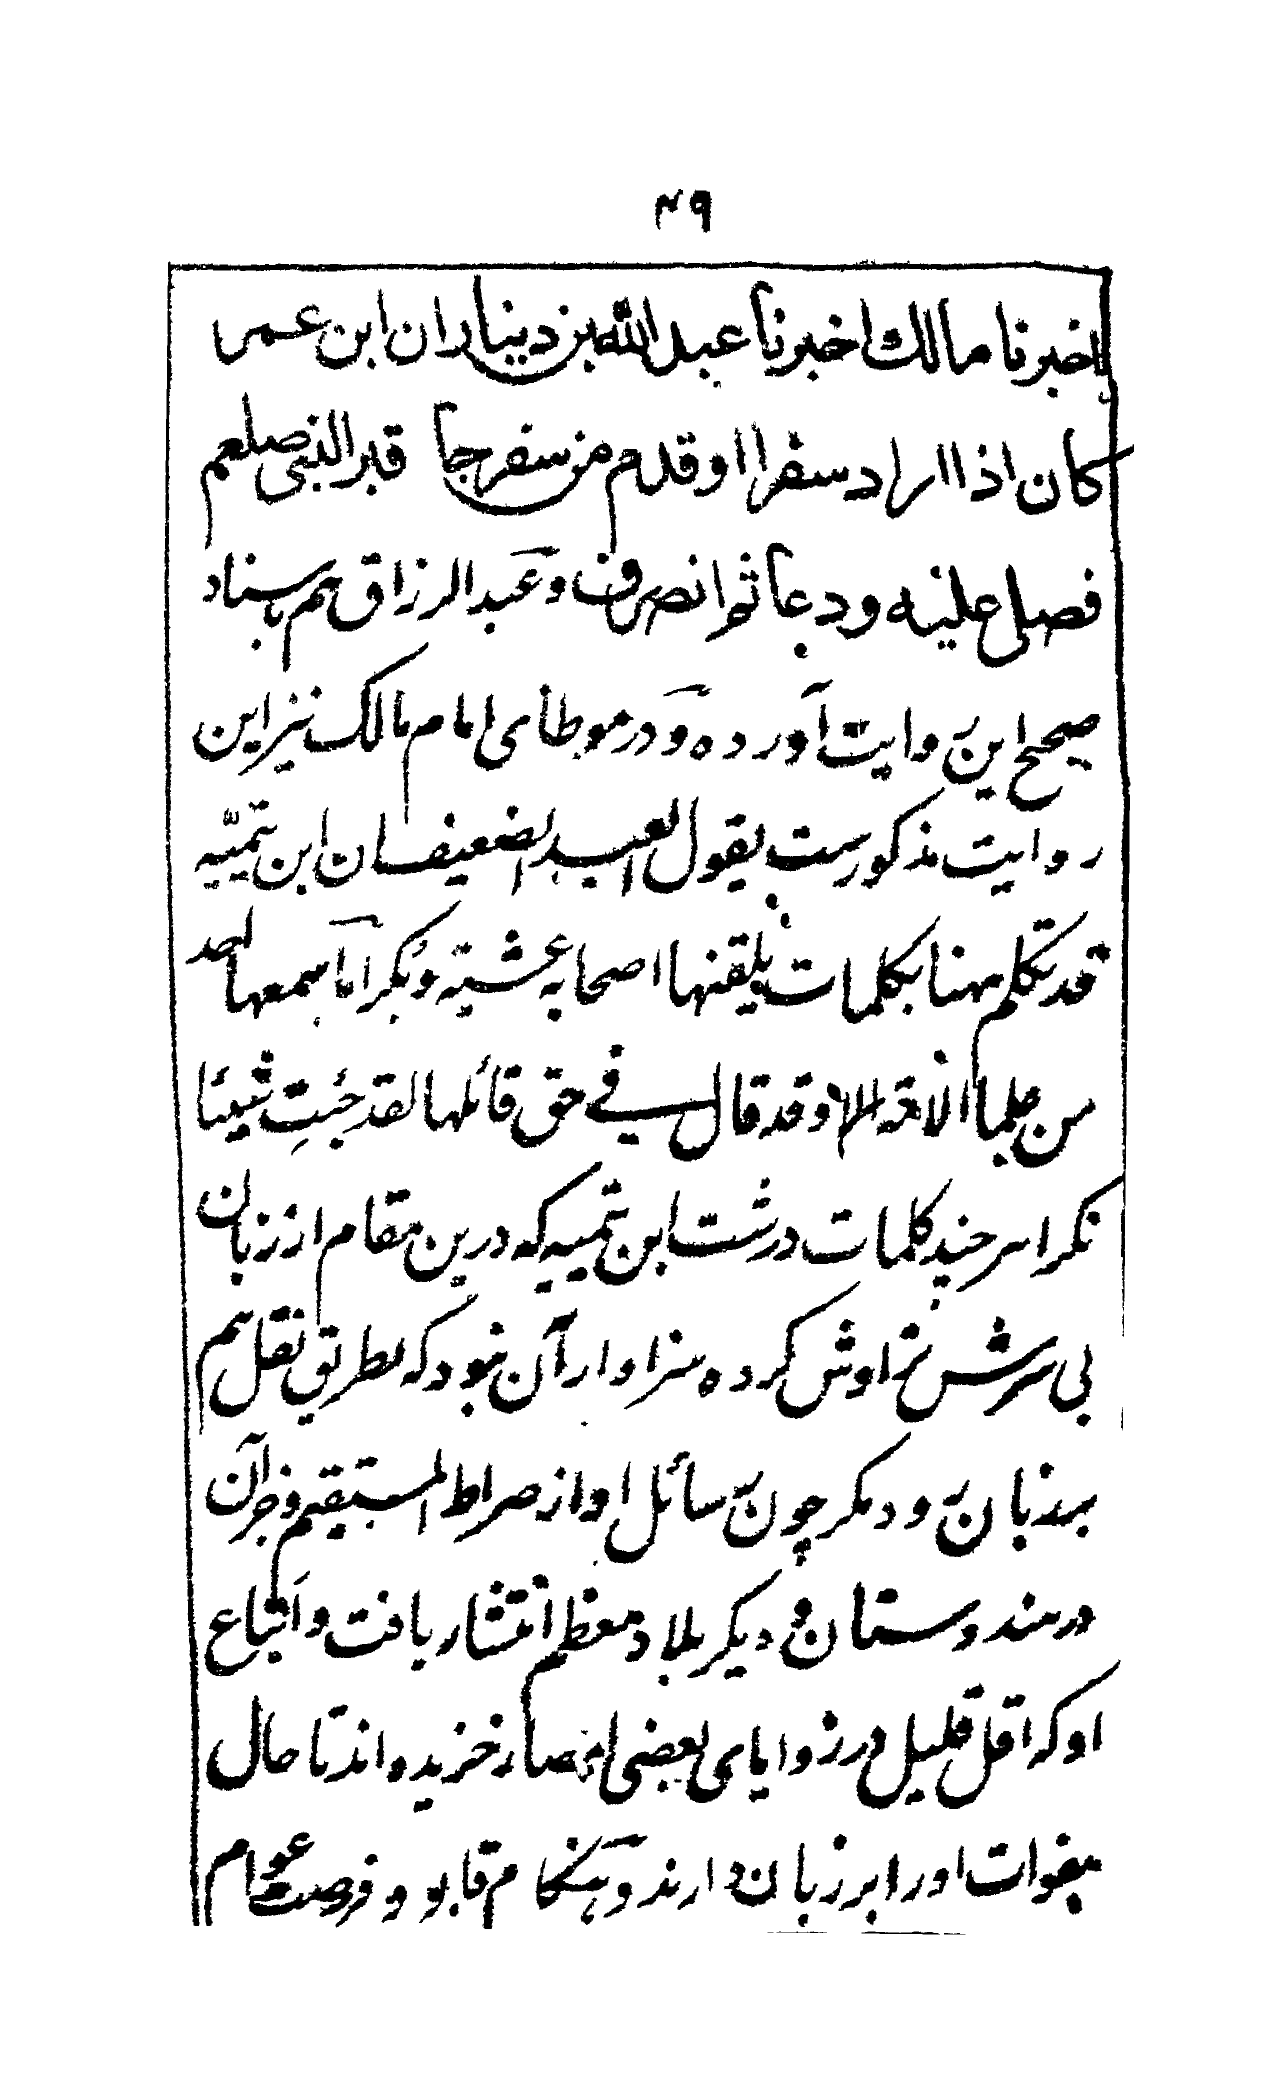 ۴۹
اخبرنا مالك اخبرنا عبد الله بن دينار ان ابن عمر
كان اذا اراد سفرا او قدم من سفر جا قبر النبى صلعم
فصلى عليه ودعا ثم انصرف و عبد الرزاق هم باسناد
صحیح این روایت آورده و در موطای امام مالک نیز این
روایت مذکورست یقول العبد الضعیف ان ابن تیمیّه
قد تکلم ههنا بکلمات یلقنها اصحابه عشیته و بکرا ما سمعها احد
من علما الائمة الا وقد قال فی حق قائلها لقد جئت شیئا
نکرا هر چند کلمات درشت ابن تیمیه که درین مقام از زبان
بی هرشش تراوش کرده سزاوار آن نبود که بطریق نقل هم
بر زبان رود مگر چون رسائل او از صراط المستقیم و جز آن
در هندوستان و دیگر بلاد معظم انتشار یافت و اتباع
او که اقل قلیل در زوایای بعضی امصار خزیده اند تا حال
هفوات او را بر زبان دارند و هنگام قابو و فرصت عوام